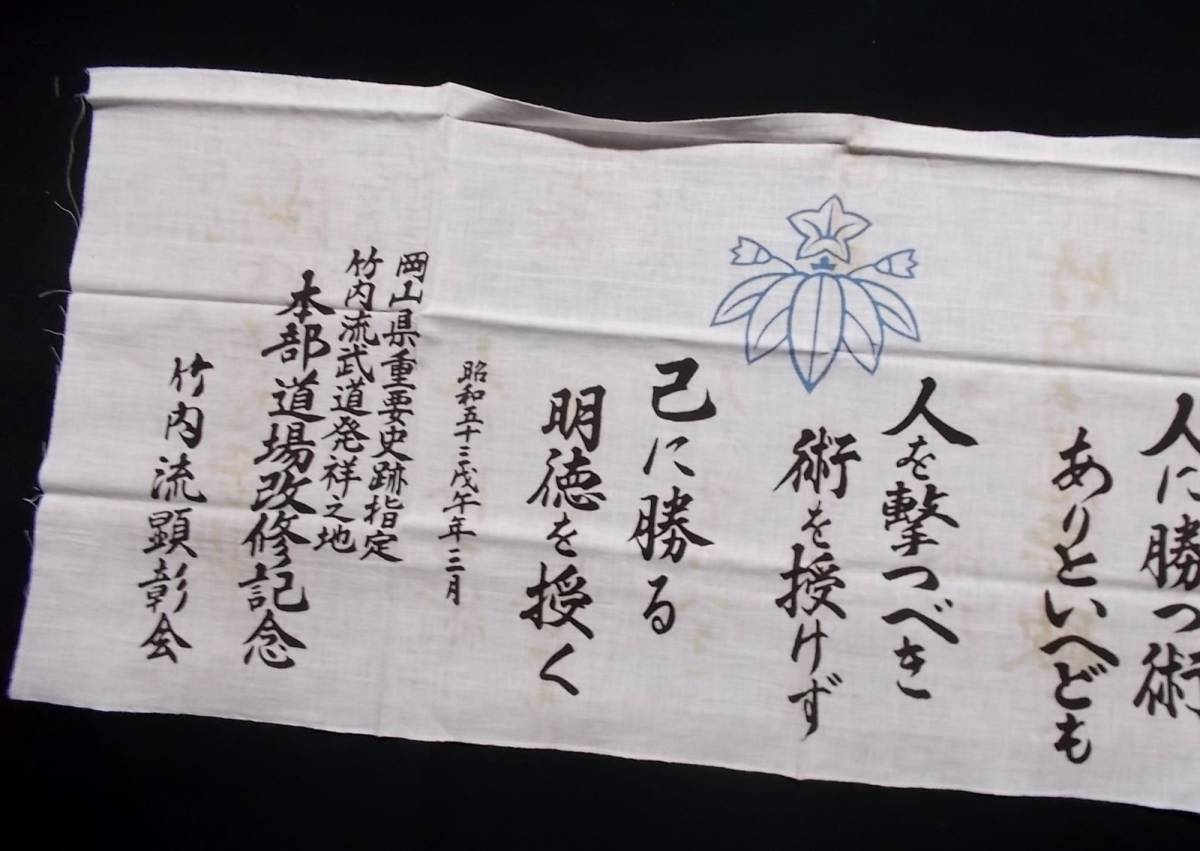 人に勝つ術
ありといへども
人を撃つべき
術を授けず
己に勝る
明徳を授く
昭和五十三戊午年三月
岡山県重要史跡指定
竹内流武道発祥之地
本部道場改修記念
竹内流顕彰会